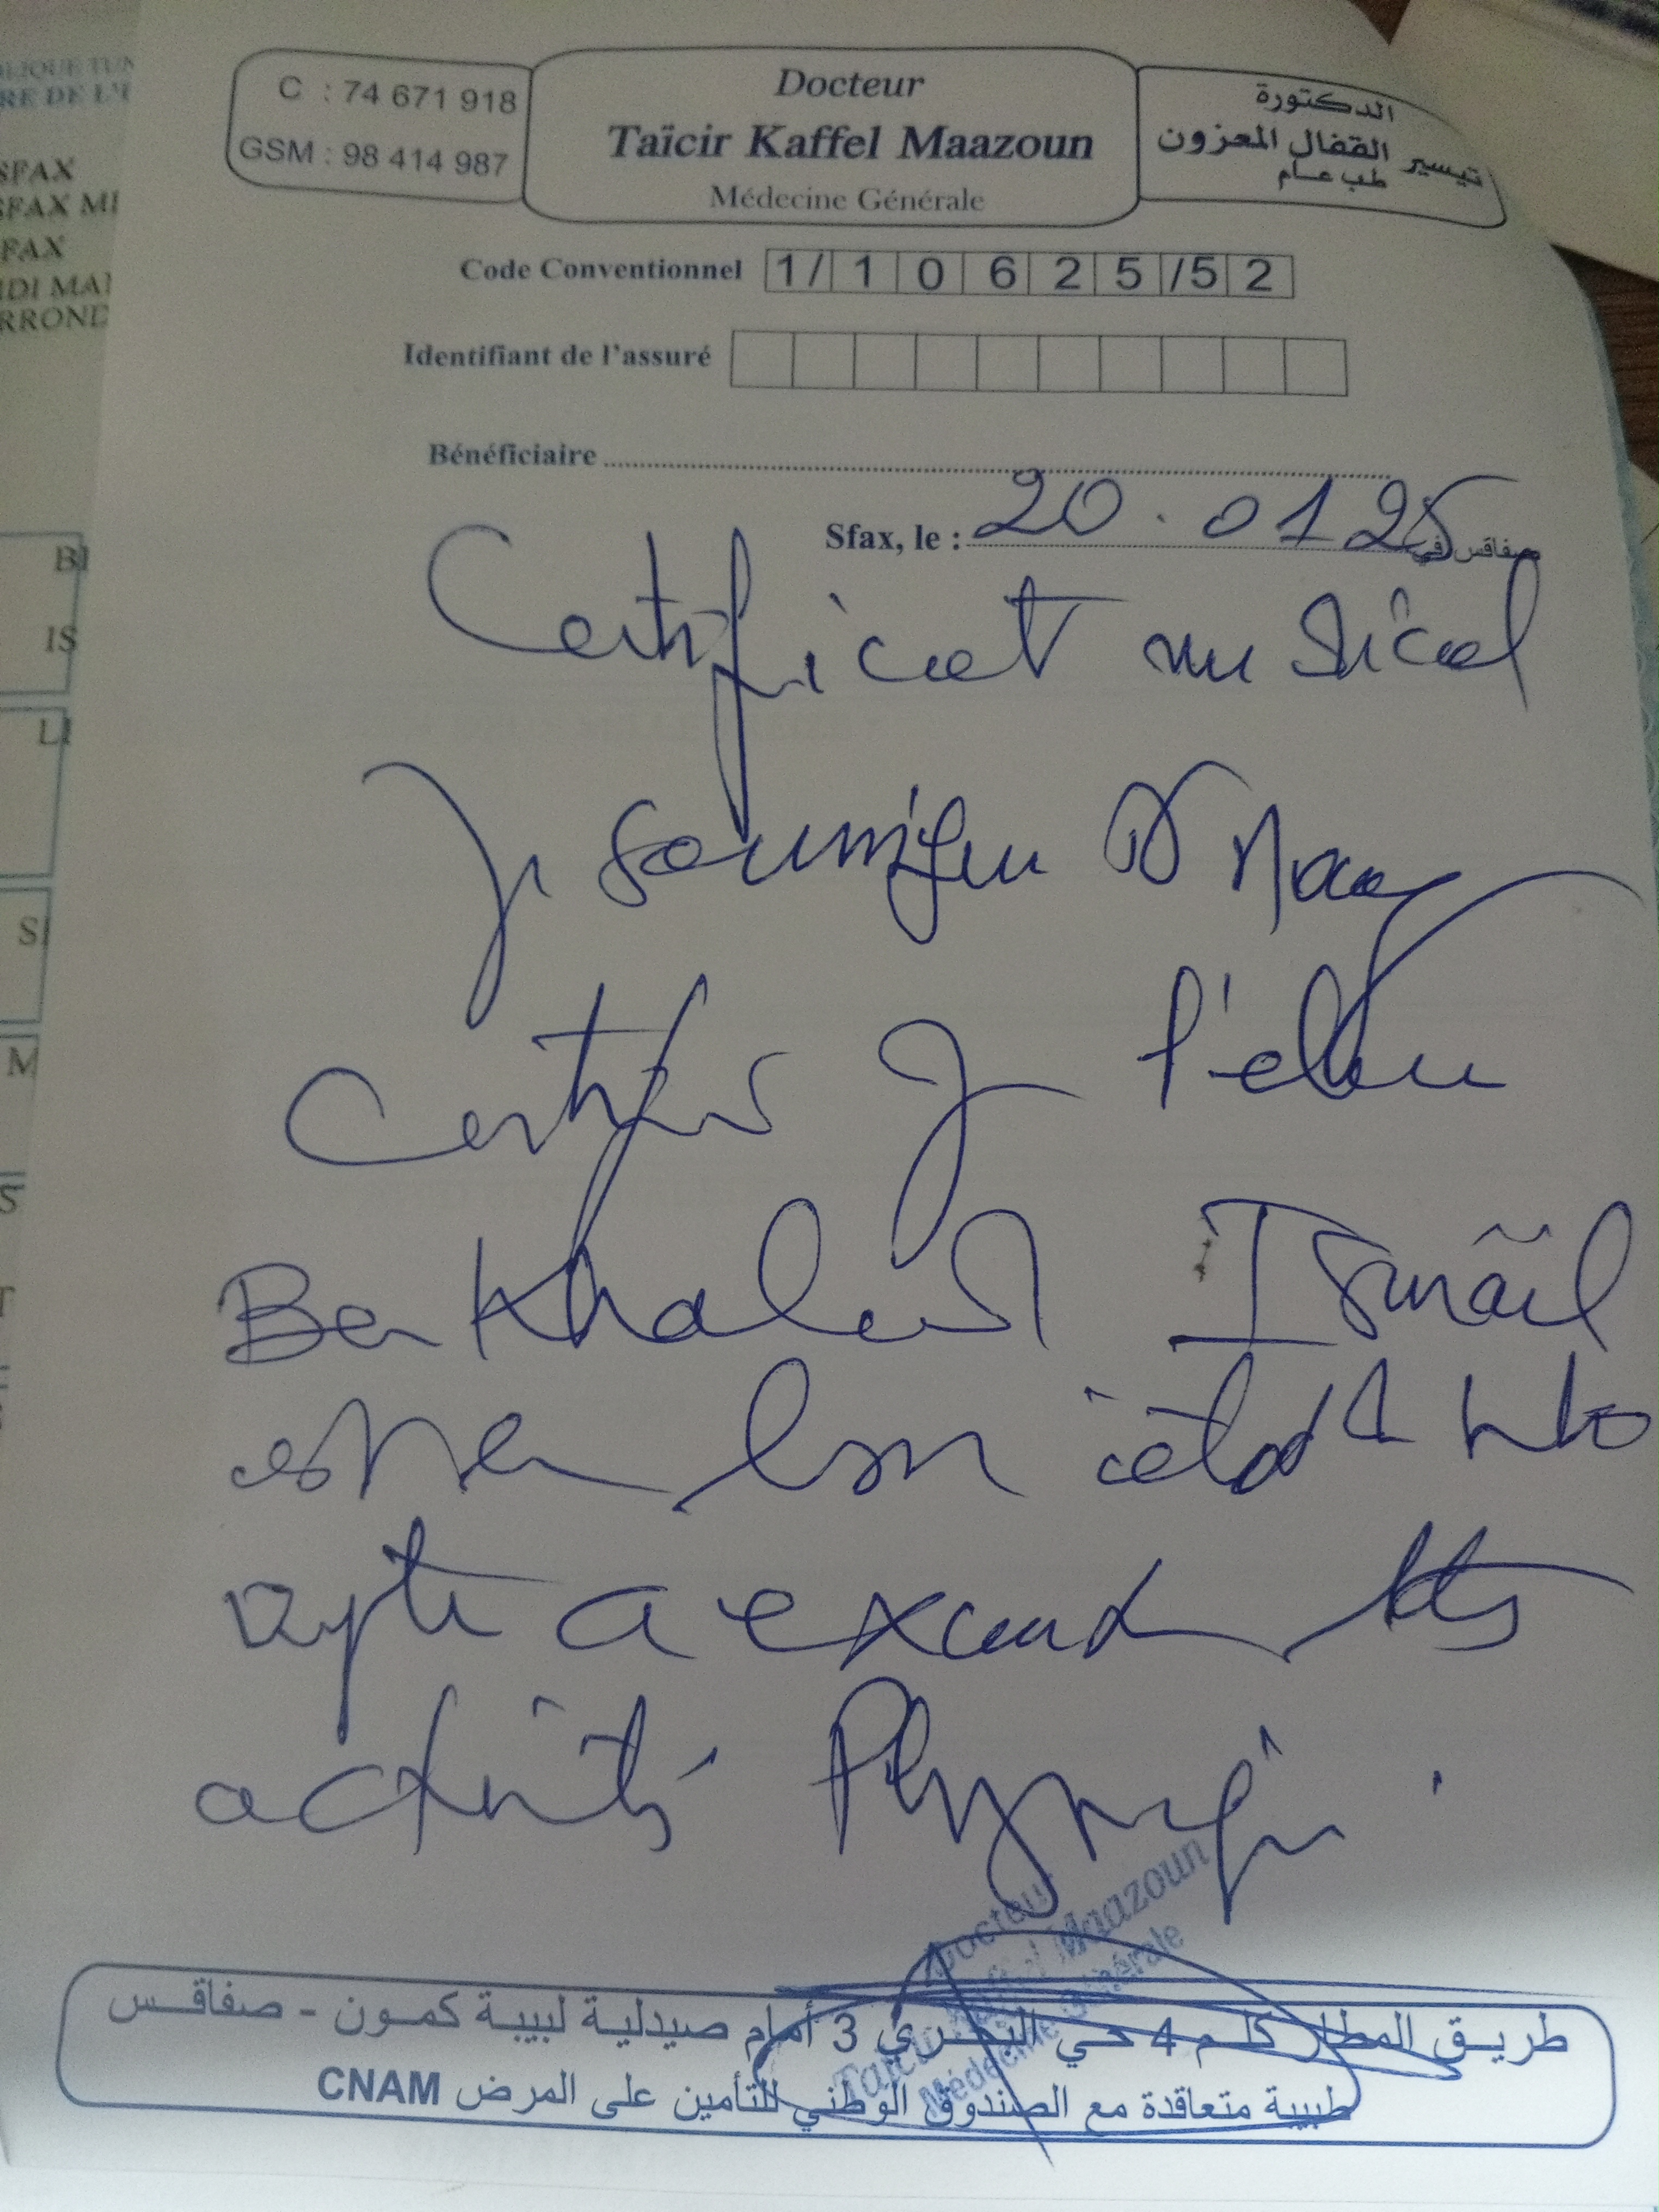 C : 74 671 918
GSM : 98 414 987
Docteur
Taïcir Kaffel Maazoun
Médecine Générale
الدكتورة
تيسير القفال المعزون
طب عام
Code Conventionnel 1/ 1 0 6 2 5 /5 2
Identifiant de l'assuré
Bénéficiaire
Sfax, le : 20.01 25 صفاقس في
Certificat médical
Je soussigné Dr Maaz
certifie que l'élève
Ben Khaled Ismaïl
est en bon état de
apte à exercer les
activités Physique.
Docteur
Taïcir Kaffel Maazoun
Médecine Générale
طريق المطار كلم 4 حي البحري 3 أمام صيدلية لبيبة كمون - صفاقس
طبيبة متعاقدة مع الصندوق الوطني للتأمين على المرض CNAM
SFAX
SFAX
BI
IS
LI
SI
M
S